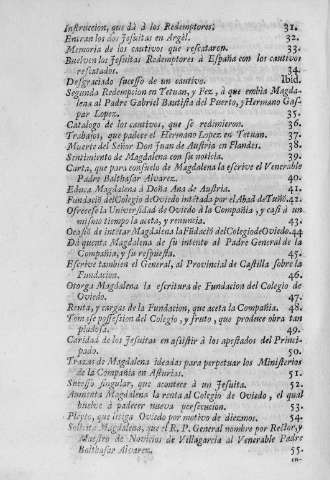 Instruccion, que dà à los Redemptores. 31.
Entran los dos Jesuitas en Argèl. 32.
Memoria de los cautivos que rescataron. 33.
Buelven los Jesuitas Redemptores à España con los cautivos
rescatados. 34.
Desgraciado sucesso de un cautivo. Ibid.
Segunda Redempcion en Tetuan, y Fez, à que embia Magda-
lena al Padre Gabriel Bautista del Puerto, y Hermano Gas-
par Lopez. 35.
Catalogo de los cautivos, que se redimieron. 36.
Trabajos, que padece el Hermano Lopez en Tetuan. 37.
Muerte del Señor Don Juan de Austria en Flandes. 38.
Sentimiento de Magdalena con su noticia. 39.
Carta, que para consuelo de Magdalena la escrive el Venerable
Padre Balthasar Alvarez. 40.
Educa Magdalena à Doña Ana de Austria. 41.
Fundaciõ del Colegio de Oviedo intẽtada por el Abad de Tuñõ. 42.
Ofrecese la Universidad de Oviedo à la Compañia, y casi à un
mismo tiempo la aceta, y renuncia. 43.
Ocasiõ de intẽtar Magdalena la Fũdaciõ del Colegio de Oviedo. 44.
Dà quenta Magdalena de su intento al Padre General de la
Compañia, y su respuesta. 45.
Escrive tambien el General, al Provincial de Castilla sobre la
Fundacion. 46.
Otorga Magdalena la escritura de Fundacion del Colegio de
Oviedo. 47.
Renta, y cargas de la Fundacion, que aceta la Compañia. 48.
Tomase possession del Colegio, y fruto, que produce obra tan
piadosa. 49.
Caridad de los Jesuitas en assistir à los apestados del Princi-
pado. 50.
Trazas de Magdalena ideadas para perpetuar los Ministerios
de la Compañia en Asturias. 51.
Sucesso singular, que acontece à un Jesuita. 52.
Aumenta Magdalena la renta al Colegio de Oviedo, el qual
buelve à padecer nueva persecucion. 53.
Pleyto, que litiga Oviedo por motivo de diezmos. 54.
Solicita Magdalena, que el R. P. General nombre por Rector, y
Maestro de Novicios de Villagarcia al Venerable Padre
Balthasar Alvarez. 55.